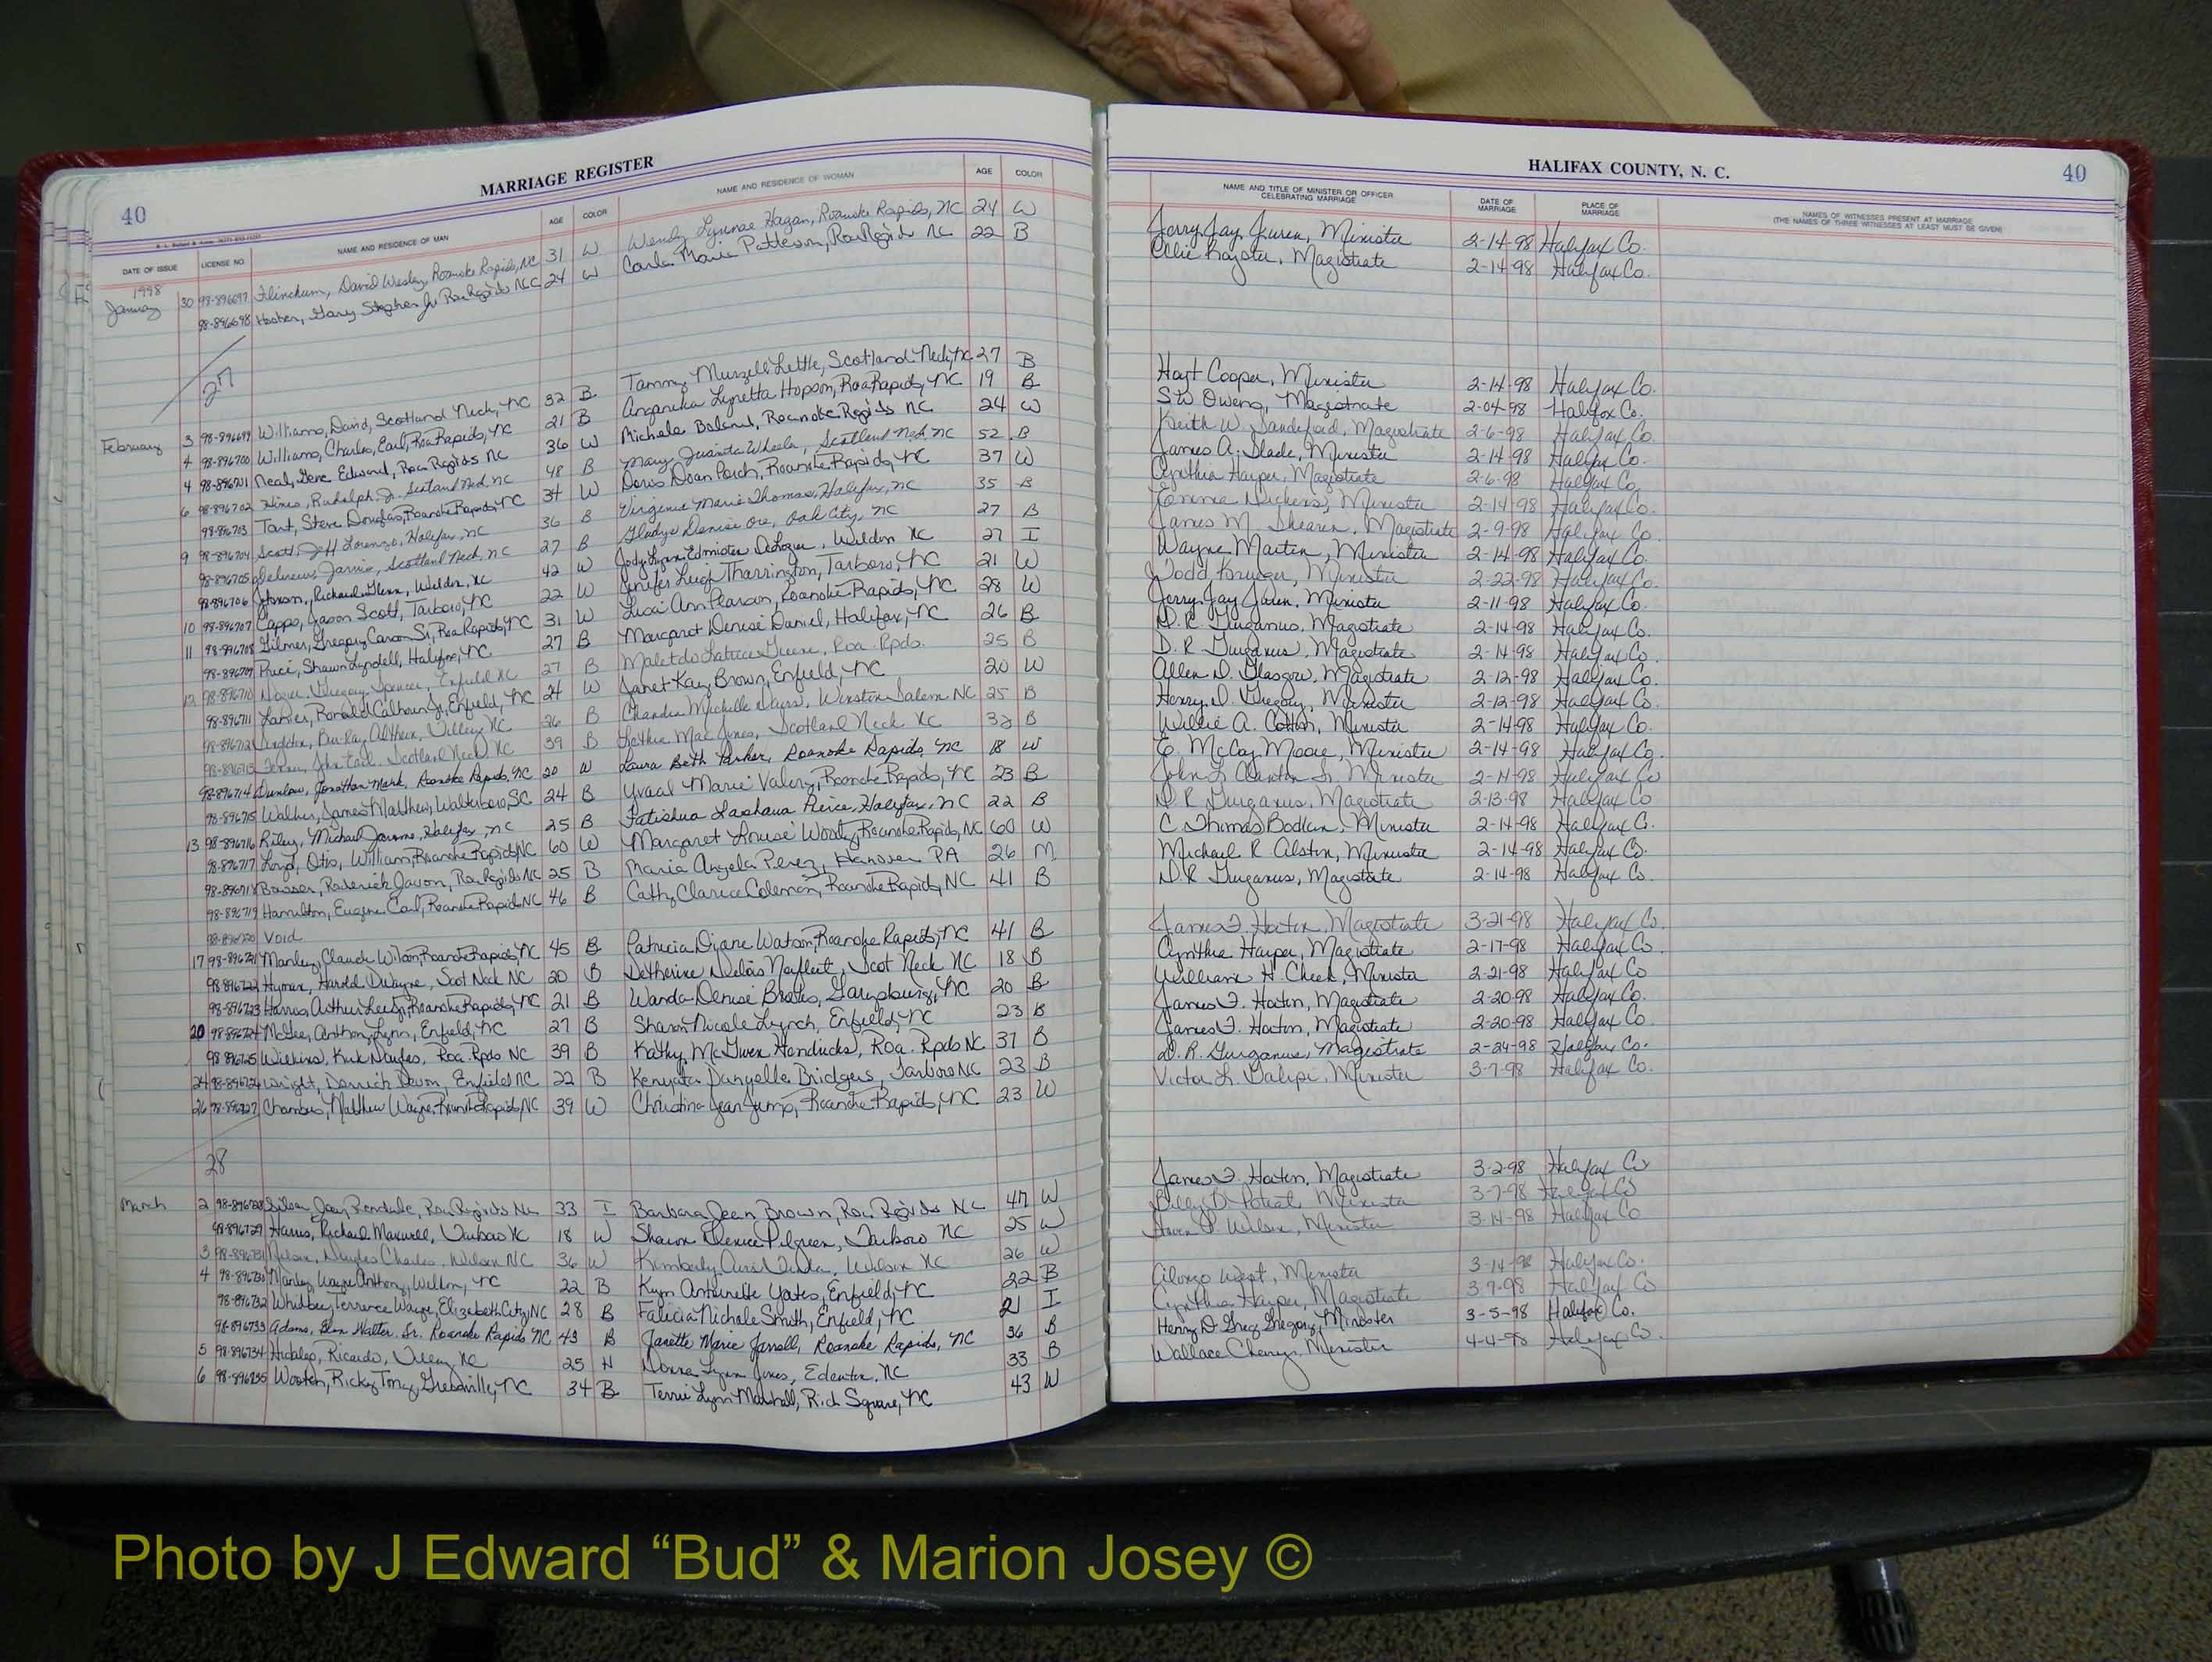 MARRIAGE REGISTER
40
DATE OF ISSUE LICENSE NO. NAME AND RESIDENCE OF MAN AGE COLOR NAME AND RESIDENCE OF WOMAN AGE COLOR
1998
January 30 98-896697 Flinchum, David Wesley, Roanoke Rapids, NC 31 W Wendy Lynnae Hagan, Roanoke Rapids, NC 24 W
98-896698 Gary Stephen Jr. Roa Rapids NC 24 W Carla Marie Patterson, Roa Rapids NC 22 B
27
February 3 98-896699 Williams, David, Scotland Neck, NC 32 B Tammy Murzell Little, Scotland Neck, NC 27 B
4 98-896700 Williams, Charles, Earl, Roa Rapids, NC 21 B Lynetta Hopson, Roa Rapids, NC 19 B
4 98-896701 Neal, Gene Edward, Roa Rapids NC 36 W Michele Boland, Roanoke Rapids NC 24 W
6 98-896702 Hines, Rudolph Jr. Scotland Neck NC 48 B Mary Juanita Wheeler, Scotland Neck NC 52 B
98-896703 Tart, Steve Douglas, Roanoke Rapids, NC 34 W Doris Doan Porch, Roanoke Rapids, NC 37 W
9 98-896704 Scott, Jeff Lorenzo, Halifax, NC 36 B Virginia Marie Thomas, Halifax, NC 35 B
98-896705 Jarvis, Scotland Neck, NC 27 B Gladys Denise Ore, Oak City, NC 27 B
98-896706 Richard Glenn, Weldon, NC 42 W Jody Lynn Edmister DeLozier, Weldon NC 27 I
10 98-896707 Capps, Jason Scott, Tarboro, NC 22 W Jenifer Leigh Tharrington, Tarboro, NC 21 W
11 98-896708 Gilmer, Gregory Carson Sr, Roa Rapids, NC 31 W Lucie Ann Pearson, Roanoke Rapids, NC 28 W
98-896709 Price, Shawn Lyndell, Halifax, NC 27 B Margaret Denise Daniel, Halifax, NC 26 B
12 98-896710 Gregory Spencer, Enfield NC 27 B Latrice Greene, Roa. Rpds. 25 B
98-896711 Lanier, Ronald Calhoun Jr, Enfield, NC 24 W Janet Kay Brown, Enfield, NC 20 W
98-896712 26 B Chandra Michelle Winston Salem NC 25 B
98-896713 John Earl, Scotland Neck NC 39 B Mae Jones, Scotland Neck NC 32 B
98-896714 Dunlow, Jonathan Mark, Roanoke Rapids, NC 20 W Laura Beth Parker, Roanoke Rapids, NC 18 W
98-896715 Walker, James Matthew, Walterboro, SC 24 B Marie Valery, Roanoke Rapids, NC 23 B
13 98-896716 Riley, Michael Jerome, Halifax, NC 25 B Latishua Lashaua Pierce, Halifax, NC 22 B
98-896717 Loyd, Otis, William, Roanoke Rapids, NC 60 W Margaret Louise Woody, Roanoke Rapids, NC 60 W
98-896718 Bowser, Roderick Javon, Roa Rapids NC 25 B Maria Angela Perez, Hanover PA 26 M
98-896719 Hamilton, Eugene Earl, Roanoke Rapids NC 46 B Cathy Clarice Coleman, Roanoke Rapids, NC 41 B
98-896720 Void
17 98-896721 Manley, Claude Wilson, Roanoke Rapids, NC 45 B Patricia Diane Watson, Roanoke Rapids, NC 41 B
98-896722 Hyman, Harold Dwayne, Scot Neck NC 20 B Delois Norfleet, Scot Neck NC 18 B
98-896723 Harris, Arthur Lee Jr, Roanoke Rapids, NC 21 B Wanda Denise Brooks, Garysburg, NC 20 B
20 98-896724 McGee, Anthony Lynn, Enfield, NC 27 B Sharon Nicole Lynch, Enfield, NC 23 B
98-896725 Wilkins, Kirk Roa. Rpds NC 39 B Kathy McGwen Hendricks, Roa. Rpds NC 37 B
24 98-896726 Wright, Derrick Devon, Enfield NC 22 B Kenyatta Danyelle Bridgers, Tarboro NC 23 B
26 98-896727 Matthew Wayne, Roanoke Rapids, NC 39 W Christina Jean Jump, Roanoke Rapids, NC 23 W
28
March 2 98-896728 Roa Rapids NC 33 I Barbara Jean Brown, Roa Rapids NC 47 W
98-896729 Harris, Richard Maxwell, Tarboro NC 18 W Sharon Denice Pilgreen, Tarboro NC 25 W
3 98-896731 Charles, Wilson NC 36 W Kimberly Wilson NC 26 W
4 98-896730 Manley, Wayne Anthony, Weldon, NC 22 B Kym Antoinette Yates, Enfield, NC 22 B
98-896732 Whidbee, Terrence Wayne, Elizabeth City, NC 28 B Falicia Nichole Smith, Enfield, NC 21 I
98-896733 Adams, Walter Sr. Roanoke Rapids NC 43 B Janette Marie Jarrell, Roanoke Rapids, NC 36 B
5 98-896734 Hidalgo, Ricardo, NC 25 H Donna Lynn Jones, Edenton, NC 33 B
6 98-896735 Wooten, Ricky Tony, Greenville, NC 34 B Terrie Lynn Marshall, Rich Square, NC 43 W
HALIFAX COUNTY, N. C.
40
NAME AND TITLE OF MINISTER OR OFFICER CELEBRATING MARRIAGE DATE OF MARRIAGE PLACE OF MARRIAGE NAMES OF WITNESSES PRESENT AT MARRIAGE (THE NAMES OF THREE WITNESSES AT LEAST MUST BE GIVEN)
Jerry Jay Minister 2-14-98 Halifax Co.
Magistrate 2-14-98 Halifax Co.
Hoyt Cooper, Minister 2-14-98 Halifax Co.
SW Owens, Magistrate 2-04-98 Halifax Co.
Keith W. Sandeford, Magistrate 2-6-98 Halifax Co.
James A. Slade, Minister 2-14-98 Halifax Co.
Cynthia Harper, Magistrate 2-6-98 Halifax Co.
Emma Dickens, Minister 2-14-98 Halifax Co.
James M. Shearin, Magistrate 2-9-98 Halifax Co.
Wayne Martin, Minister 2-14-98 Halifax Co.
Todd Krueger, Minister 2-22-98 Halifax Co.
Jerry Jay Minister 2-11-98 Halifax Co.
D.R. Gurganus, Magistrate 2-14-98 Halifax Co.
D. R. Gurganus, Magistrate 2-14-98 Halifax Co.
Allen D. Glasgow, Magistrate 2-12-98 Halifax Co.
Henry D. Gregory, Minister 2-12-98 Halifax Co.
Willie A. Cotton, Minister 2-14-98 Halifax Co.
E. McCoy Moore, Minister 2-14-98 Halifax Co.
John Minister 2-14-98 Halifax Co
D.R Gurganus, Magistrate 2-13-98 Halifax Co
C Thomas Bodkin, Minister 2-14-98 Halifax Co.
Michael R. Alston, Minister 2-14-98 Halifax Co.
D.R Gurganus, Magistrate 2-14-98 Halifax Co.
Magistrate 3-21-98 Halifax Co.
Cynthia Harper, Magistrate 2-17-98 Halifax Co.
William H. Cheek, Minister 2-21-98 Halifax Co
Magistrate 2-20-98 Halifax Co.
Magistrate 2-20-98 Halifax Co.
D. R. Gurganus, Magistrate 2-24-98 Halifax Co.
Victor L. Galipi, Minister 3-7-98 Halifax Co.
Magistrate 3-2-98 Halifax Co
Billy D. Poteat Minister 3-7-98 Halifax Co
Wilson, Minister 3-14-98 Halifax Co
Alonzo West, Minister 3-14-98 Halifax Co.
Cynthia Harper, Magistrate 3-7-98 Halifax Co
Henry D. Greg Gregory, Minister 3-5-98 Halifax Co.
Wallace Cherry, Minister 4-4-98 Halifax Co.
Photo by J Edward “Bud” & Marion Josey ©